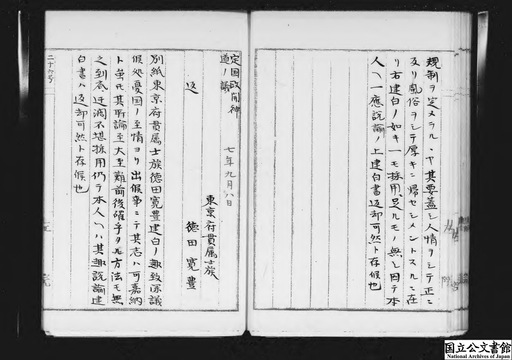 規制ヲ定メラルヽヤ其要蓋シ人情ヲシテ正ニ
及リ風俗ヲシテ厚キニ帰セシメントスルニ在
リ右建白ノ如キ一モ採用ニ足ルモノ無シ因テ本
人ヘ一應説諭ノ上建白書返却可然ト存候也
定国政開神
道ノ議
七年九月八日
返
東京府貫属士族
徳田寛豊
別紙東京府貫属士族徳田寛豊建白ノ趣致深議
候処憂国ノ至情ヨリ出候筋ニテ其志ハ可嘉納
ト雖モ其所論至大至難前後確乎タル方法モ無
之到底迂濶不堪採用仍テ本人ヘハ其趣説諭建
白書ハ返却可然ト存候也
国立公文書館
National Archives of Japan